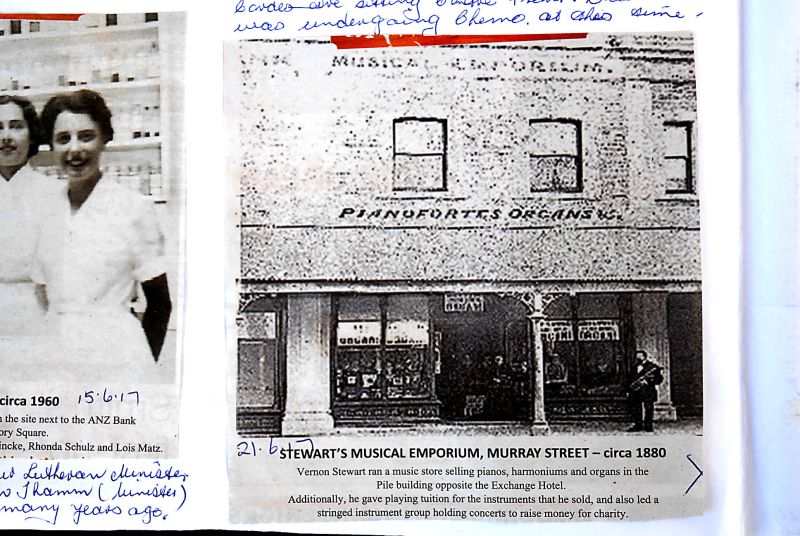 are sitting
was undergoing Chemo. at this time.
MUSICAL EMPORIUM.
PIANOFORTES ORGANS &c.
ORGAN
circa 1960 15.6.17
n the site next to the ANZ Bank
ory Square.
incke, Rhonda Schulz and Lois Matz.
Lutheran Minister
Thamm (Minister)
many years ago.
21.6.17
STEWART'S MUSICAL EMPORIUM, MURRAY STREET – circa 1880
Vernon Stewart ran a music store selling pianos, harmoniums and organs in the
Pile building opposite the Exchange Hotel.
Additionally, he gave playing tuition for the instruments that he sold, and also led a
stringed instrument group holding concerts to raise money for charity.